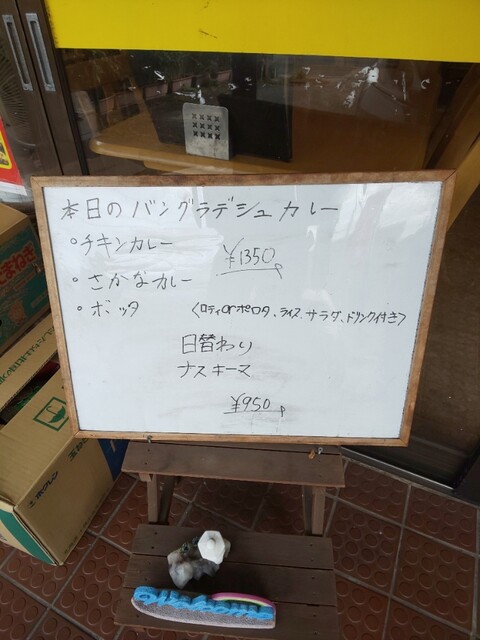 本日のバングラデシュカレー
・チキンカレー
¥1350
・さかなカレー
・ボッタ
〈ロティorポロタ、ライス、サラダ、ドリンク付き〉
日替わり
ナスキーマ
¥950
たまねぎ
ホクレン